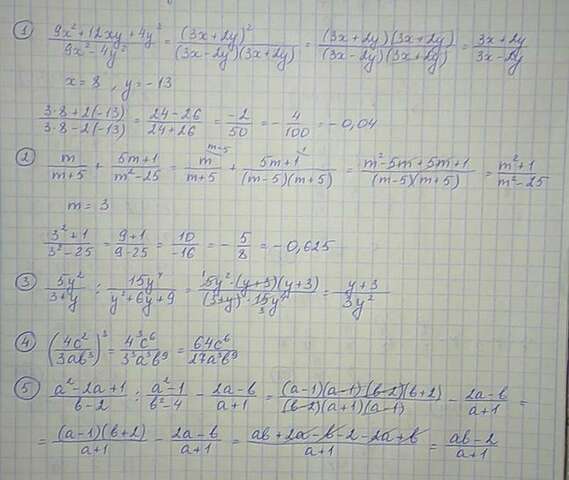 ① (9x²+12xy+4y²)/(9x²-4y²) = (3x+2y)²/((3x-2y)(3x+2y)) = ((3x+2y)(3x+2y))/((3x-2y)(3x+2y)) = (3x+2y)/(3x-2y)
x=8, y=-13
(3·8+2(-13))/(3·8-2(-13)) = (24-26)/(24+26) = -2/50 = -4/100 = -0,04
② m/(m+5) + (5m+1)/(m²-25) = m^(m-5)/(m+5) + (5m+1)^1/((m-5)(m+5)) = (m²-5m+5m+1)/((m-5)(m+5)) = (m²+1)/(m²-25)
m=3
(3²+1)/(3²-25) = (9+1)/(9-25) = 10/(-16) = -5/8 = -0,625
③ 5y²/(3+y) : 15y⁴/(y²+6y+9) = (¹5y²·(y+3)(y+3))/((3+y)·15₃y⁴) = (y+3)/(3y²)
④ (4c²/(3ab³))³ = 4³c⁶/(3³a³b⁹) = 64c⁶/(27a³b⁹)
⑤ (a²-2a+1)/(b-2) : (a²-1)/(b²-4) - (2a-b)/(a+1) = ((a-1)(a-1)(b-2)(b+2))/((b-2)(a+1)(a-1)) - (2a-b)/(a+1) =
= ((a-1)(b+2))/(a+1) - (2a-b)/(a+1) = (ab+2a-b-2-2a+b)/(a+1) = (ab-2)/(a+1)